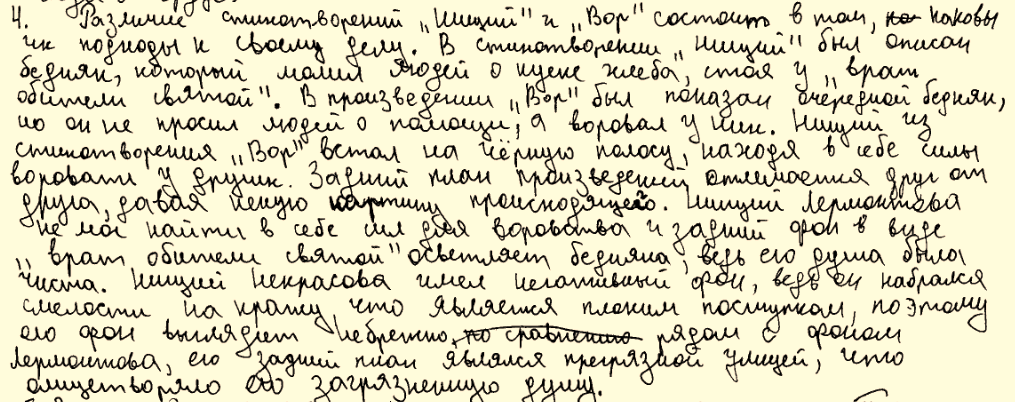 4. Различие стихотворений „Нищий" и „Вор" состоит в том, каковы
их подходы к своему делу. В стихотворении „Нищий" был описан
бедняк, который молил людей о куске хлеба, стоя у „врат
обители святой". В произведении „Вор" был показан очередной бедняк,
но он не просил людей о помощи, а воровал у них. Нищий из
стихотворения „Вор" встал на чёрную полосу, находя в себе силы
воровать у других. Задний план произведений отличается друг от
друга, давая ясную картину происходящего. Нищий Лермонтова
не мог найти в себе сил для воровства и задний фон в виде
„врат обители святой" осветляет бедняка, ведь его душа была
чиста. Нищий Некрасова имел негативный фон, ведь он набрался
смелости на кражу, что является плохим поступком, поэтому
его фон выглядит небрежно, по сравнению рядом с фоном
Лермонтова, его задний план являлся прегрязной улицей, что
олицетворяло его загрязненную душу.